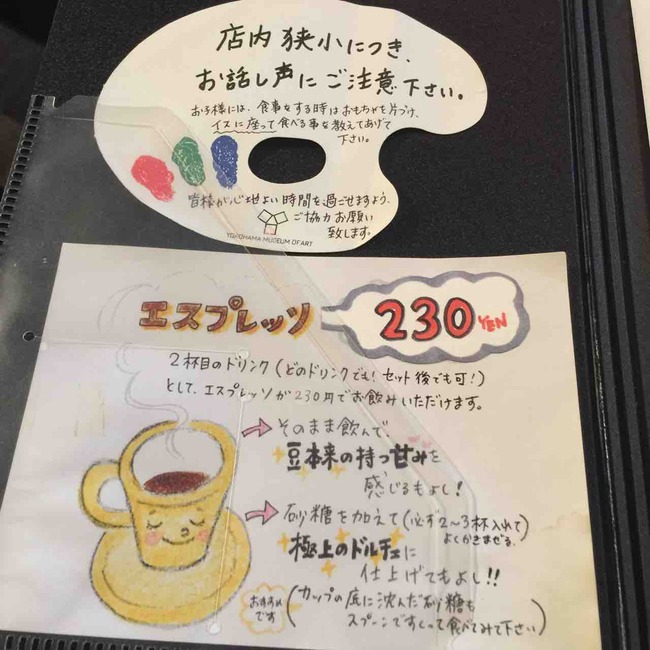 店内狭小につき、
お話し声にご注意下さい。
お子様には、食事をする時はおもちゃを片づけ、
イスに座って食べる事を教えてあげて
下さい。
皆様が心地よい時間を過ごせますよう、
ご協力お願い
致します。
YOKOHAMA MUSEUM OF ART
エスプレッソ
230 YEN
2杯目のドリンク(どのドリンクでも!セット後でも可!)
として、エスプレッソが230円でお飲みいただけます。
⇨そのまま飲んで、
豆本来の持つ甘みを
感じるもよし!
⇨砂糖を加えて(必ず2〜3杯入れて
よくかきまぜる)
極上のドルチェに
仕上げてもよし!!
おすすめ
です
(カップの底に沈んだ砂糖も
スプーンですくって食べてみて下さい)